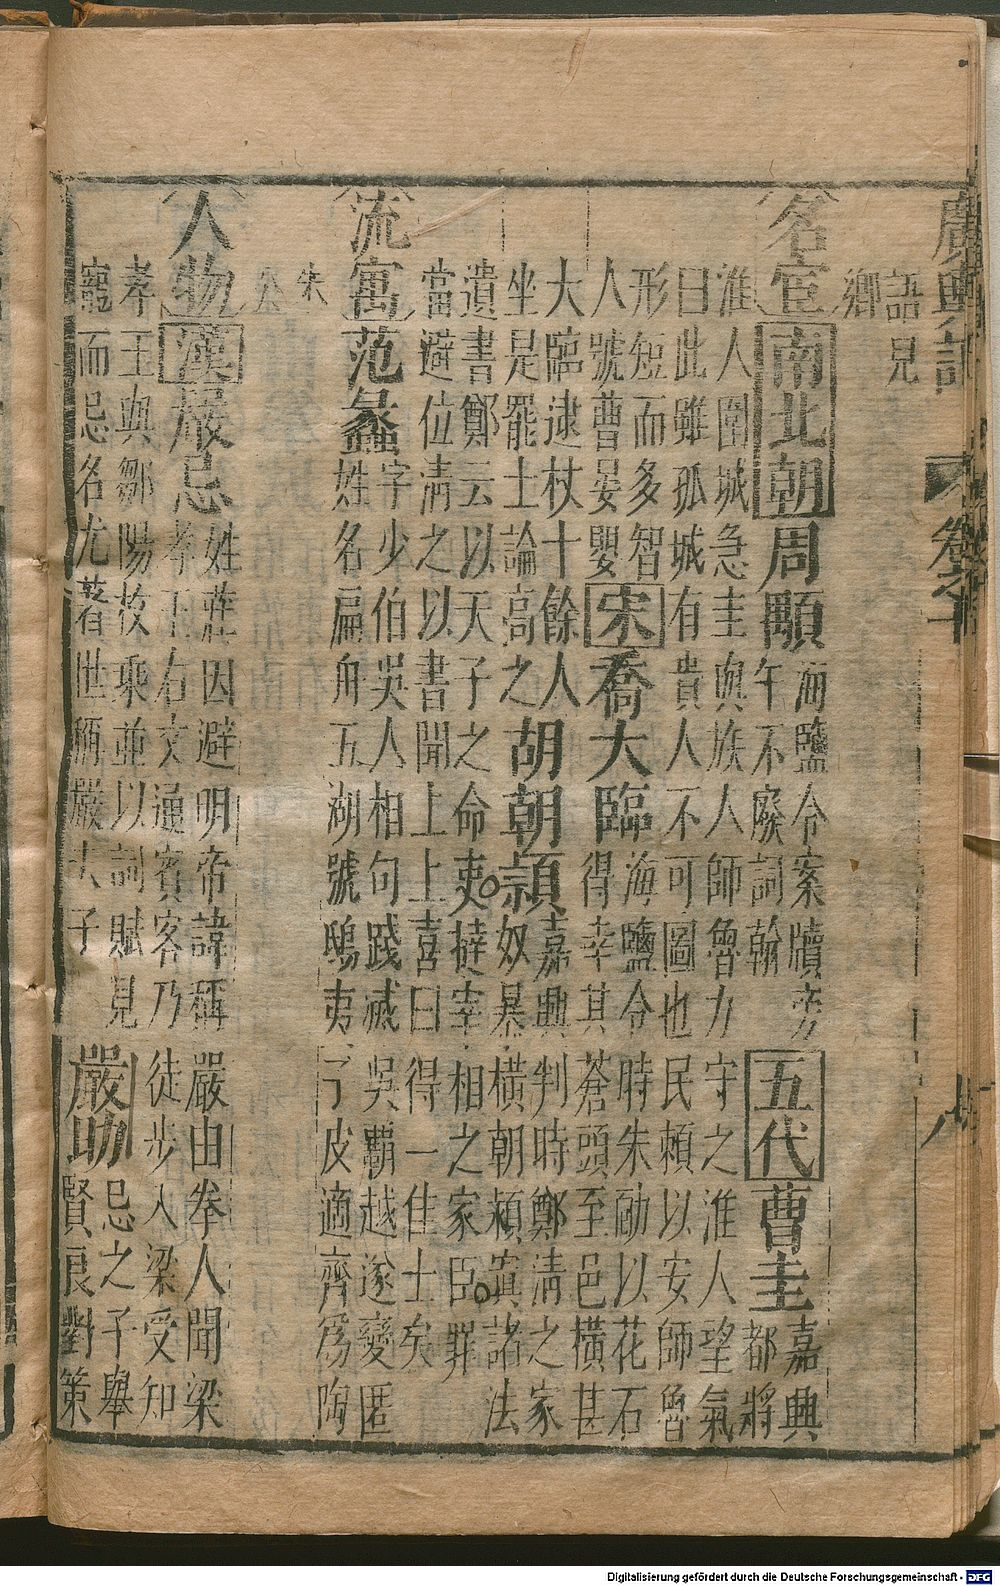 廣輿記 卷之十 八
語兒
鄉
名宦 南北朝 周顒 海鹽令案牘旁
午不廢詞翰 五代 曹圭 嘉興
都將
淮人圍城急圭與族人師魯力守之淮人望氣
曰此雖孤城有貴人不可圖也民賴以安師魯
形短而多智
人號曹晏嬰 宋 喬大臨 海鹽令時朱勔以花石
得幸其蒼頭至邑橫甚
大臨逮杖十餘人
坐是罷士論高之 胡朝頴 嘉興判時鄭清之家
奴暴橫朝頴寘諸法
遺書鄭云以天子之命吏撻宰相之家臣罪
當避位清之以書聞上上喜曰得一佳士矣
流寓 范蠡 字少伯吳人相句踐滅吳覇越遂變匿
姓名扁舟五湖號鴟夷子皮適齊爲陶
朱
公
人物 漢 嚴忌 姓莊因避明帝諱稱嚴由拳人聞梁
孝王右文通賓客乃徒步入梁受知
孝王與鄒陽枚乘並以詞賦見
寵而忌名尤著世稱嚴夫子 嚴助 忌之子舉
賢良對策
Digitalisierung gefördert durch die Deutsche Forschungsgemeinschaft - DFG